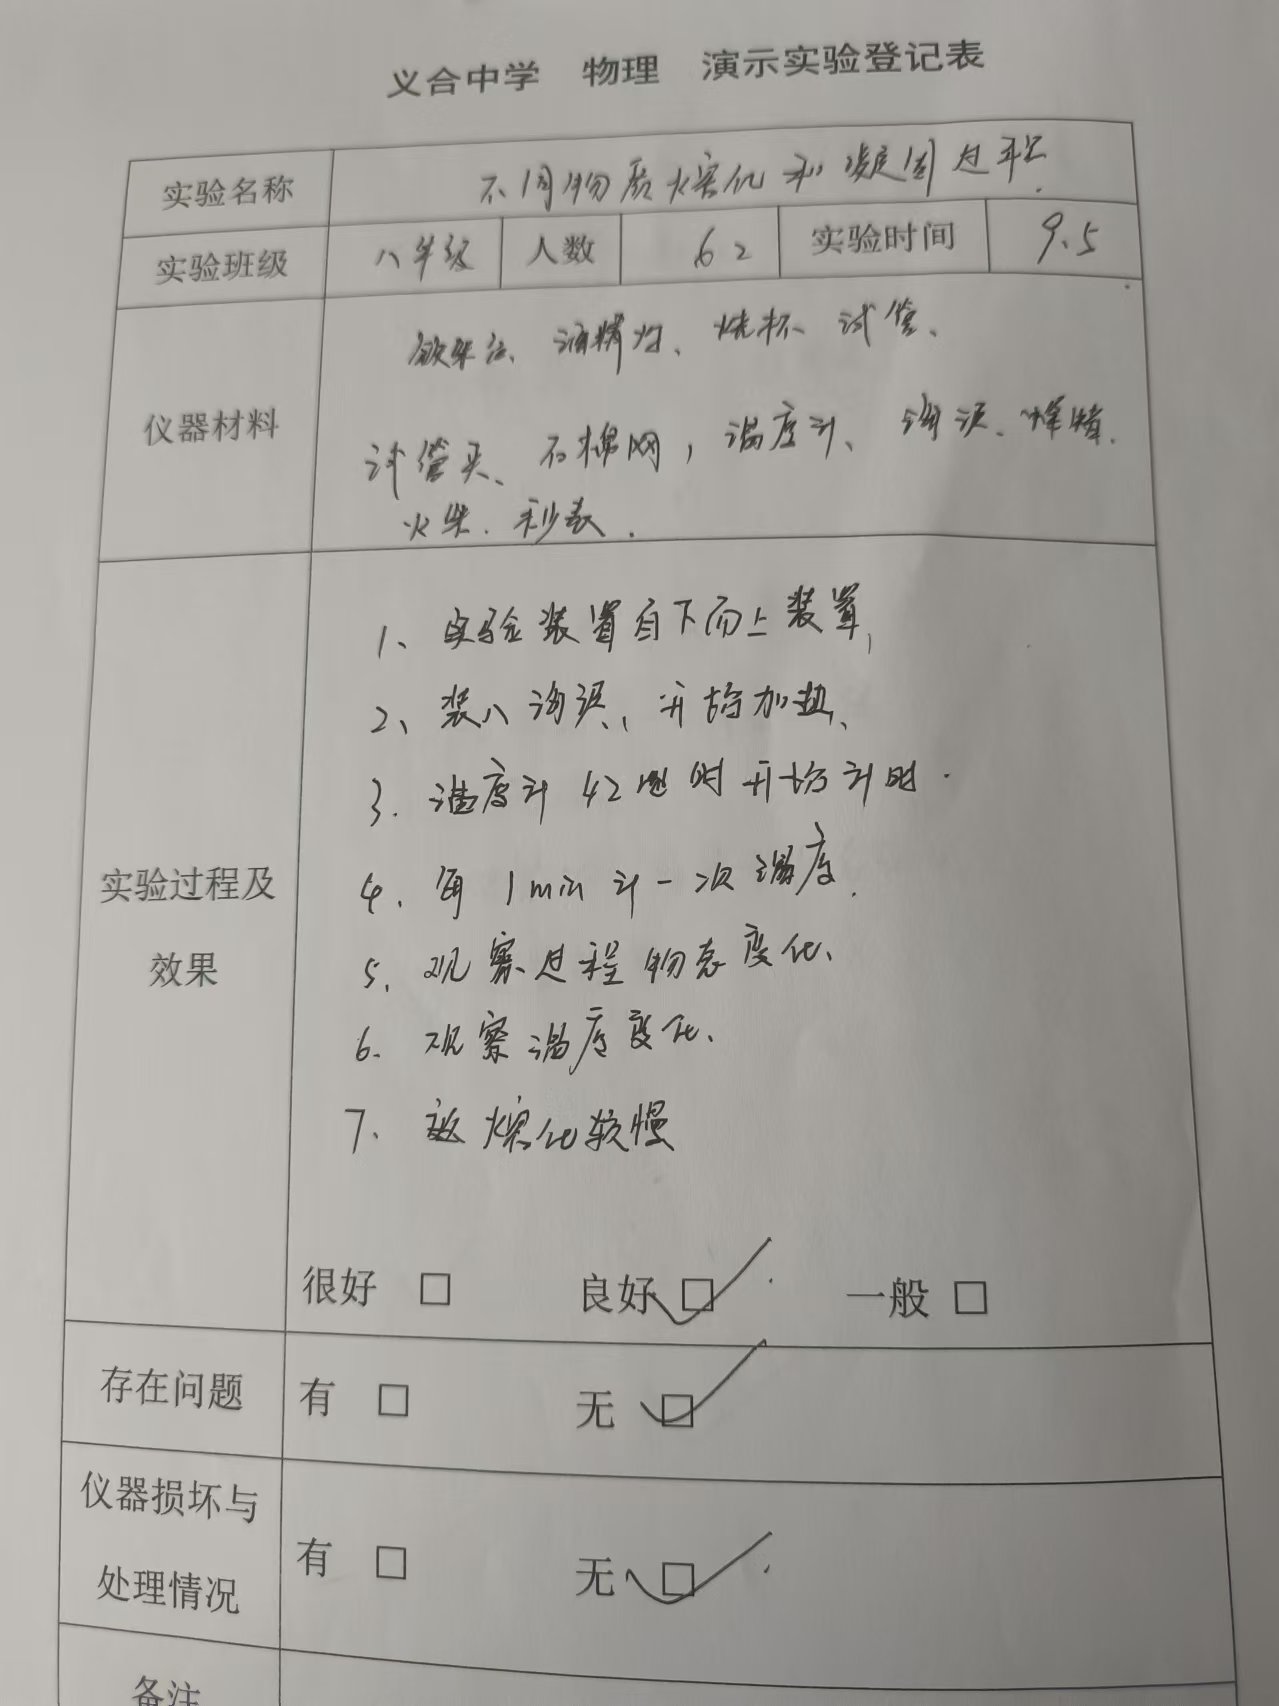 义合中学 物理 演示实验登记表
实验名称 不同物质熔化和凝固过程.
实验班级 八年级 人数 62 实验时间 9.5
铁架台、酒精灯、烧杯、试管、
仪器材料
试管夹、石棉网，温度计、海波、蜂蜡.
火柴.秒表.
1、实验装置自下而上装置,
2、装入海波、开始加热、
3.温度计42 时开始计时.
4.每1min计一次温度.
实验过程及
效果
5.观察过程物态变化、
6.观察温度变化、
7. 熔化较慢
很好 □ 良好 □ 一般 □
存在问题 有 □ 无 □
仪器损坏与
处理情况
有 □ 无 □
备注